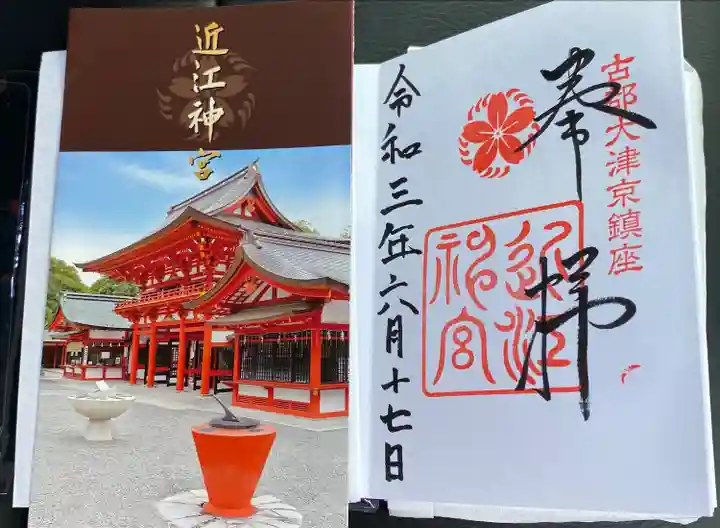 近江神宮
古都大津京鎮座
奉拝
近江神宮
令和三年六月十七日